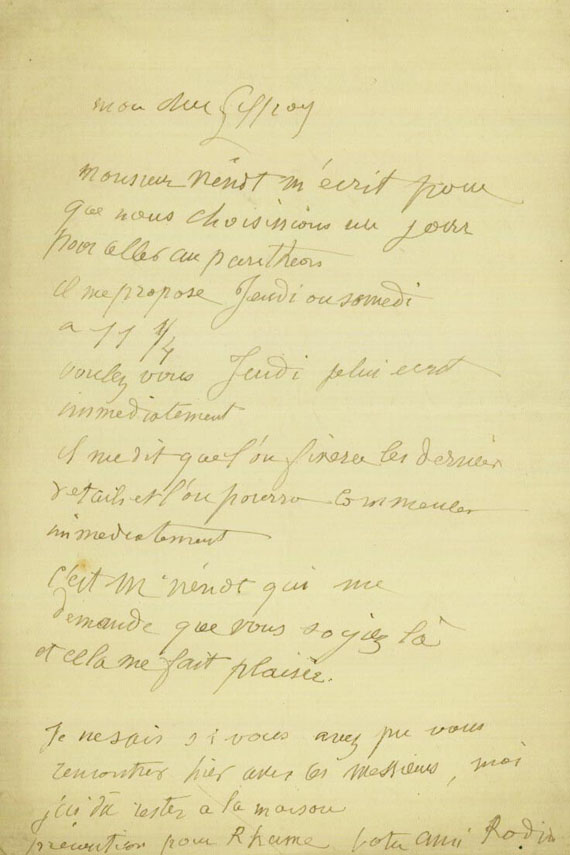 mon cher Geffroy
monsieur Nénot m'écrit pour
que nous choisissions un jour
pour aller au pantheon
il me propose Jeudi ou samedi
a 11 1/4
voulez vous Jeudi je lui ecrit
immediatement
il me dit que l'on fixera les dernier
details et l'on pourra commencer
immediatement
c'est Mr nénot qui me
demande que vous soyiez là
et cela me fait plaisir.
Je ne sais si vous avez pu vous
rencontrer hier avec les messieurs, moi
j'ai dû rester a la maison
pour Rhume votre ami Rodin